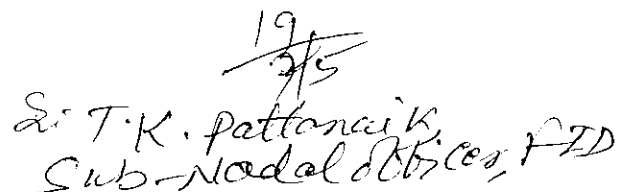 19
3/5
Sri T.K. Pattanaik,
Sub-Nodal Officer, FTD